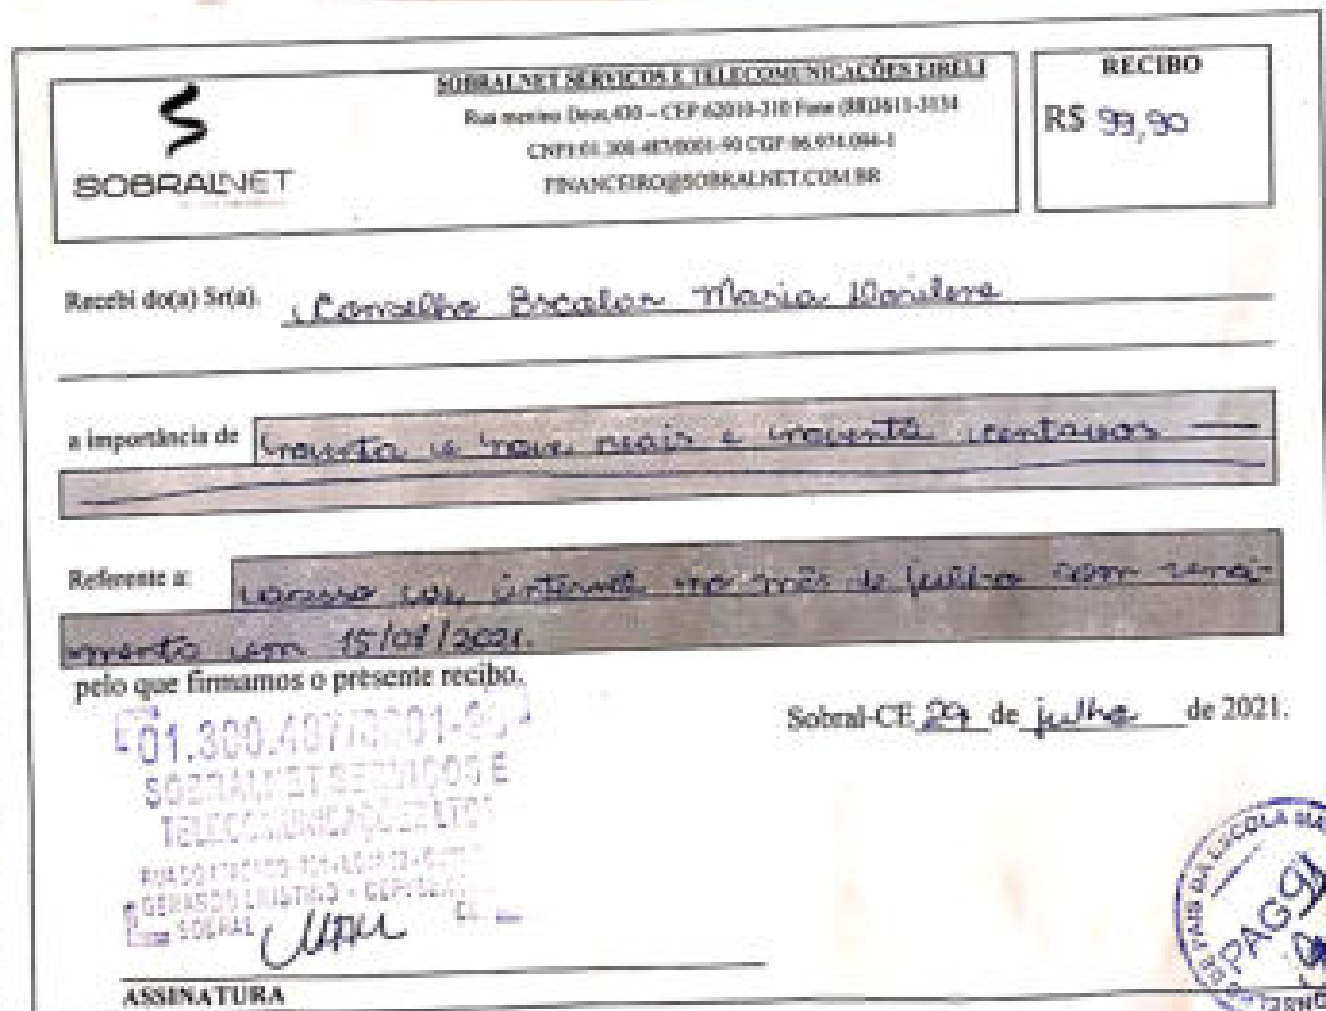 SOBRALNET
SOBRALNET SERVICOS E TELECOMUNICACÕES EIRELI
Rua menino Deus,430 – CEP 62010-310 Fone (88)3611-3134
CNPJ:01.300-487/0001-90 CGF:06.974.094-1
FINANCEIRO@SOBRALNET.COM.BR
RECIBO
R$ 99,90
Recebi do(a) Sr(a). Conselho Escolar Maria
a importância de noventa e nove reais e noventa centavos
Referente a: acesso de internet no mês de julho com venci-
mento em
pelo que firmamos o presente recibo.
Sobral-CE 29 de julho de 2021.
01.300.487/0001-90
SOBRALNET SERVIÇOS E
SOBRAL
ASSINATURA
DE PAIS DA ESCOLA